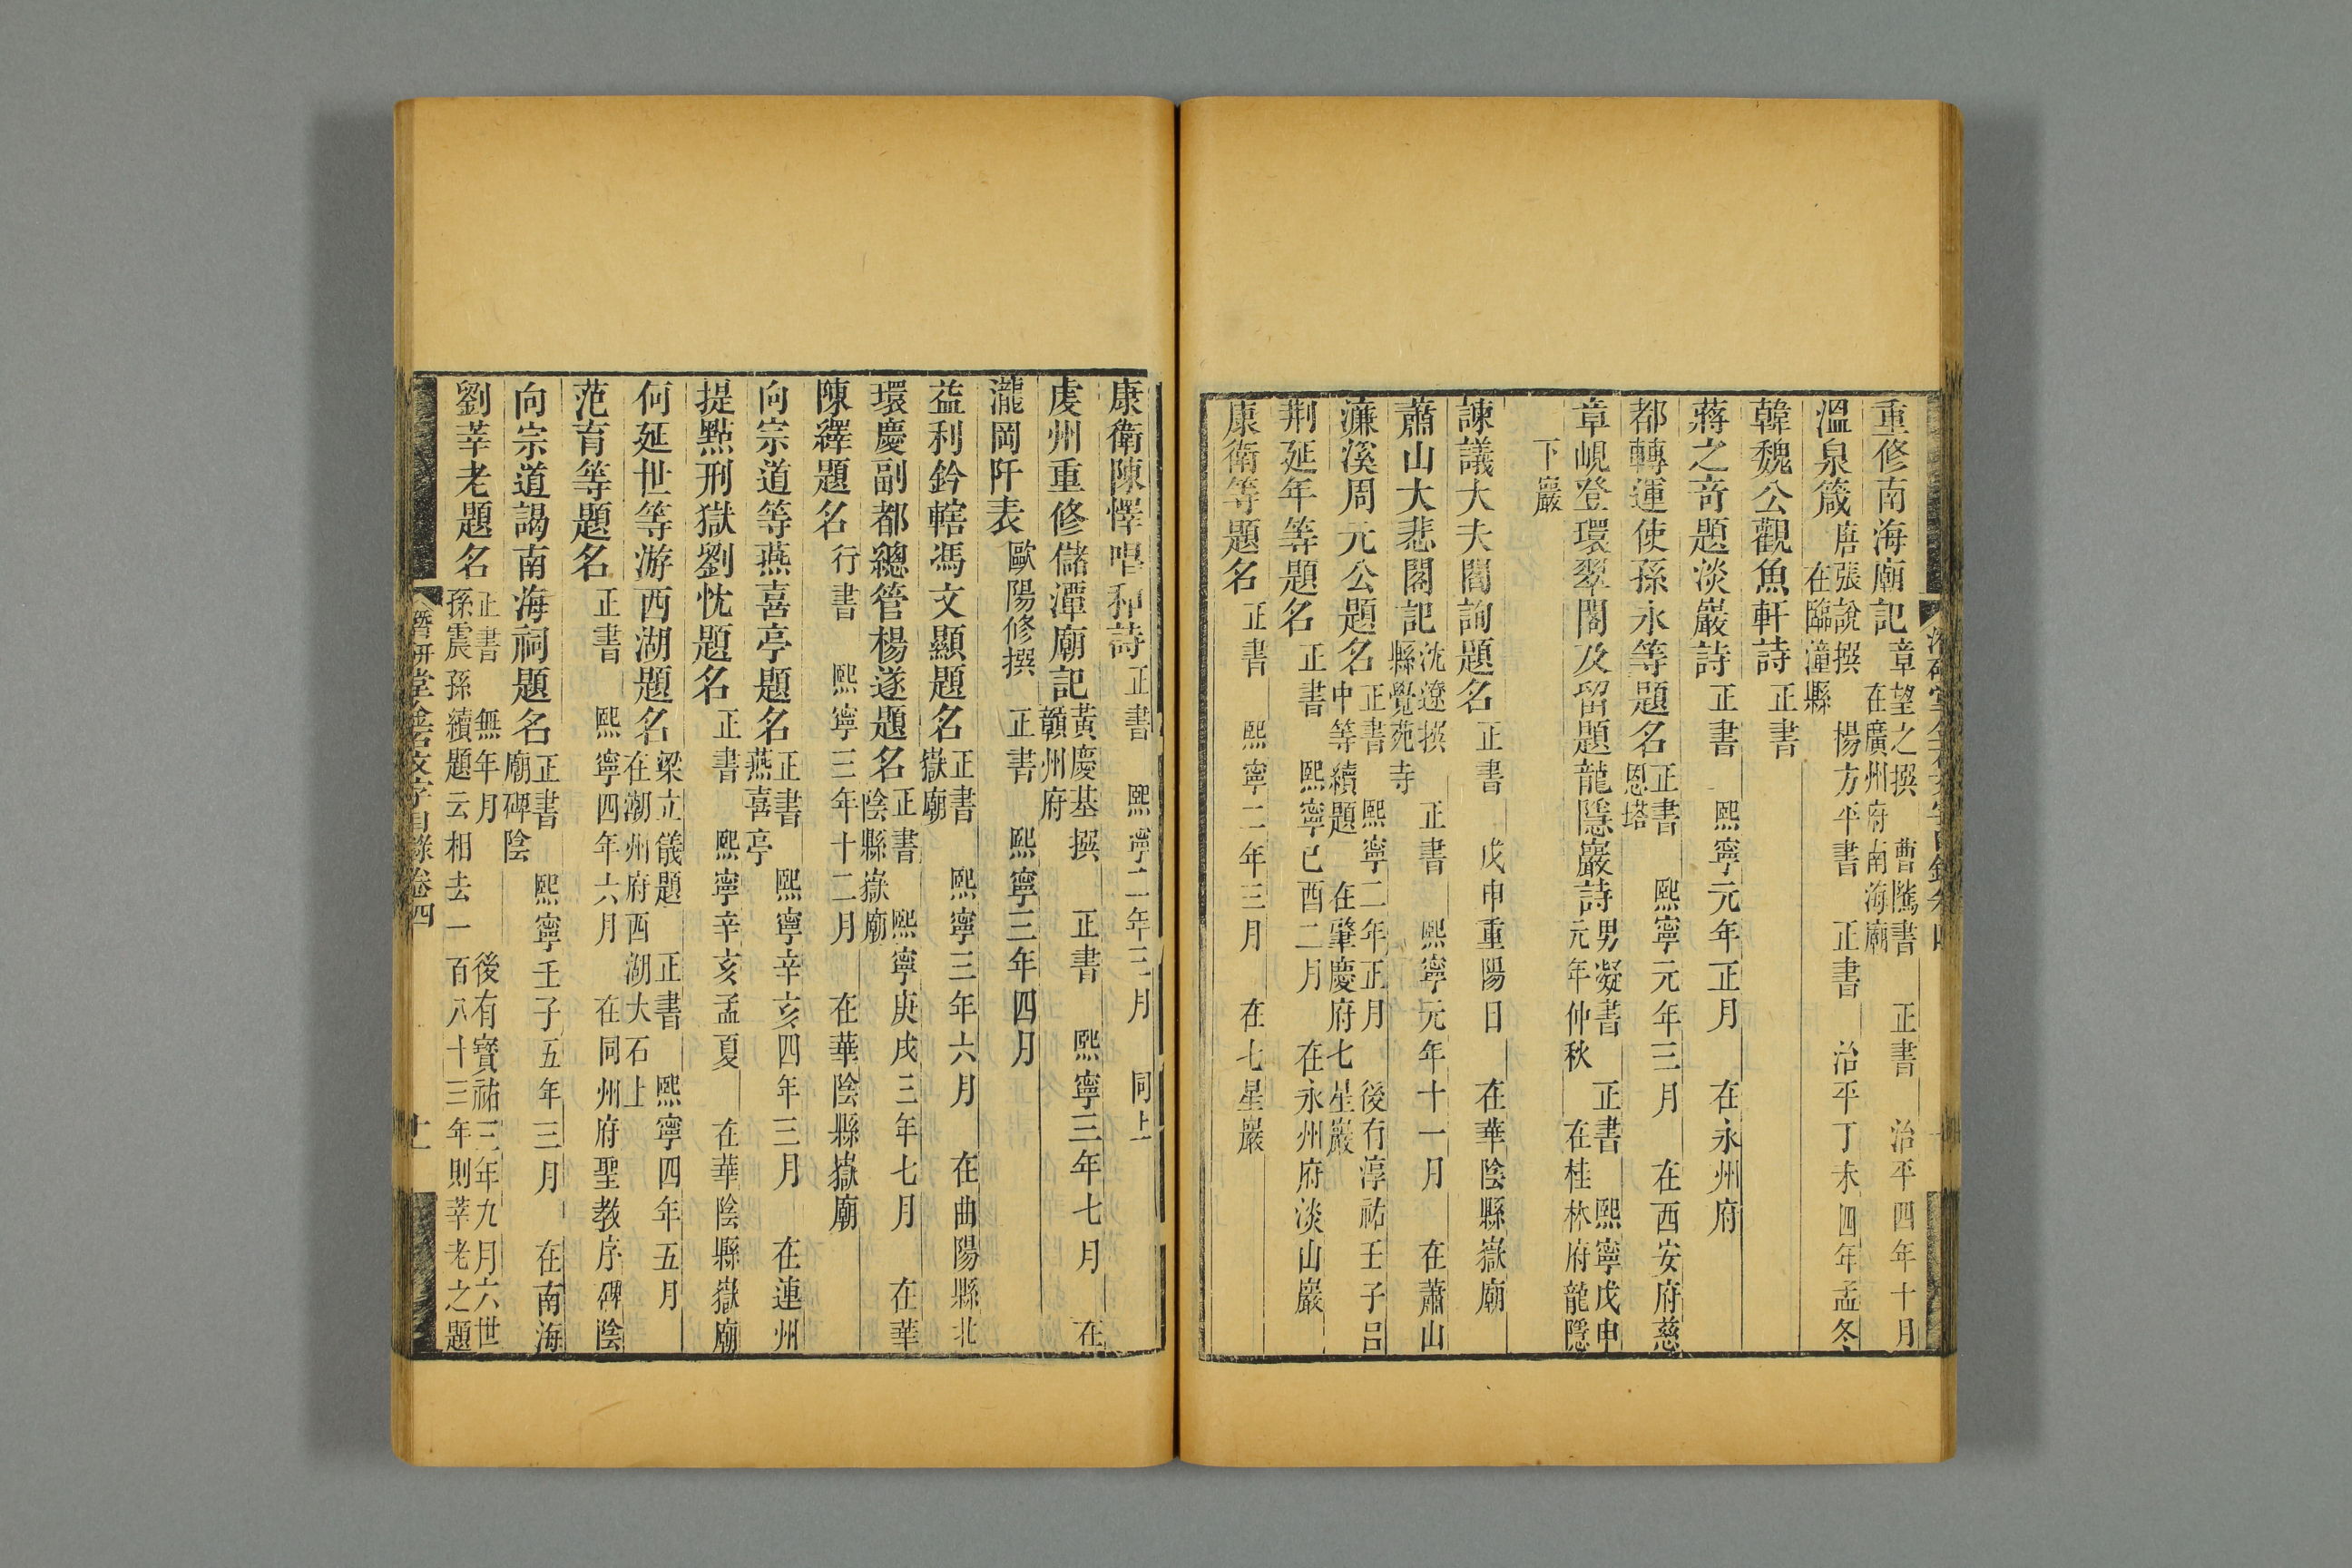 重修南海廟記章望之撰 曹隲書 正書 治平四年十月
在廣州府南海廟
溫泉箴唐張說撰 楊方平書 正書 治平丁未四年孟冬
在臨潼縣
韓魏公觀魚軒詩正書
蔣之奇題淡巖詩正書 熙寧元年正月 在永州府
都轉運使孫永等題名正書 熙寧元年三月 在西安府慈
恩塔
章峴登環翠閣及留題龍隱巖詩男凝書 正書 熙寧戊申
元年仲秋 在桂林府龍隱
下巖
諫議大夫閻詢題名正書 戊申重陽日 在華陰縣嶽廟
蕭山大悲閣記沈遼撰 正書 熙寧元年十一月 在蕭山
縣覺苑寺
濂溪周元公題名正書 熙寧二年正月 後有淳祐壬子呂
中等續題 在肇慶府七星巖
荆延年等題名正書 熙寧己酉二月 在永州府淡山巖
康衛等題名正書 熙寧二年三月 在七星巖
康衛陳懌唱和詩正書 熙寧二年三月 同上
虔州重修儲潭廟記黃慶基撰 正書 熙寧三年七月 在
贛州府
瀧岡阡表歐陽修撰 正書 熙寧三年四月
益利鈐轄馮文顯題名正書 熙寧三年六月 在曲陽縣北
嶽廟
環慶副都總管楊遂題名正書 熙寧庚戌三年七月 在華
陰縣嶽廟
陳繹題名行書 熙寧三年十二月 在華陰縣嶽廟
向宗道等燕喜亭題名正書 熙寧辛亥四年三月 在連州
燕喜亭
提點刑獄劉忱題名正書 熙寧辛亥孟夏 在華陰縣嶽廟
何延世等游西湖題名梁立儀題 正書 熙寧四年五月
在潮州府西湖大石上
范育等題名正書 熙寧四年六月 在同州府聖教序碑陰
向宗道謁南海祠題名正書 熙寧壬子五年三月 在南海
廟碑陰
劉莘老題名正書 無年月 後有寶祐三年九月六世
孫震孫續題云相去一百八十三年則莘老之題
潛研堂金石文字目錄卷四 十一